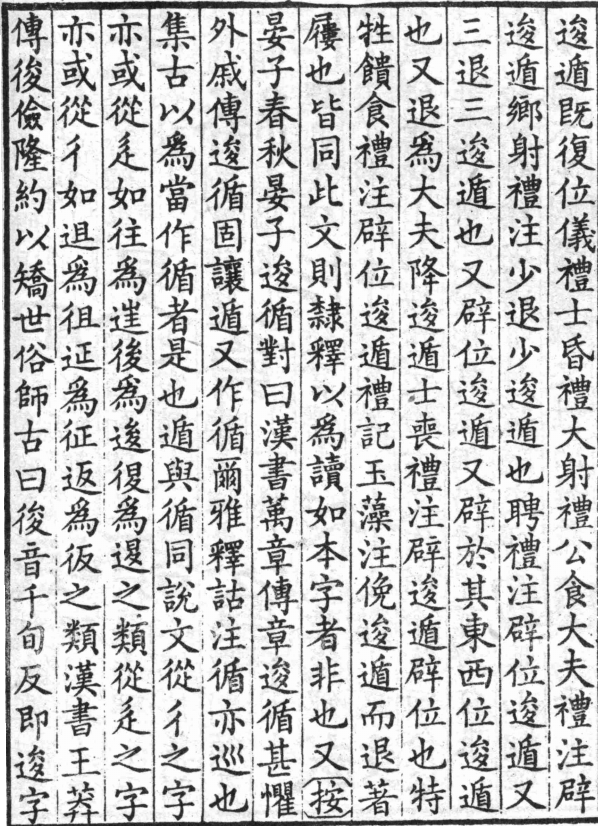 逡遁既復位儀禮士昏禮大射禮公食大夫禮注辟
逡遁鄉射禮注少退少逡遁也聘禮注辟位逡遁又
三退三逡遁也又辟位逡遁又辟於其東西位逡遁
也又退爲大夫降逡遁士喪禮注辟逡遁辟位也特
牲饋食禮注辟位逡遁禮記玉藻注俛逡遁而退著
屨也皆同此文則隸釋以爲讀如本字者非也又按
晏子春秋晏子逡循對曰漢書萬章傳章逡循甚懼
外戚傳逡循固讓遁又作循爾雅釋詁注循亦巡也
集古以爲當作循者是也遁與循同說文從彳之字
亦或從辵如往爲𨓹後爲逡復爲𨕥之類從辵之字
亦或從彳如退爲徂𨒌爲征返爲彶之類漢書王莽
傳後儉隆約以矯世俗師古曰後音千旬反即逡字